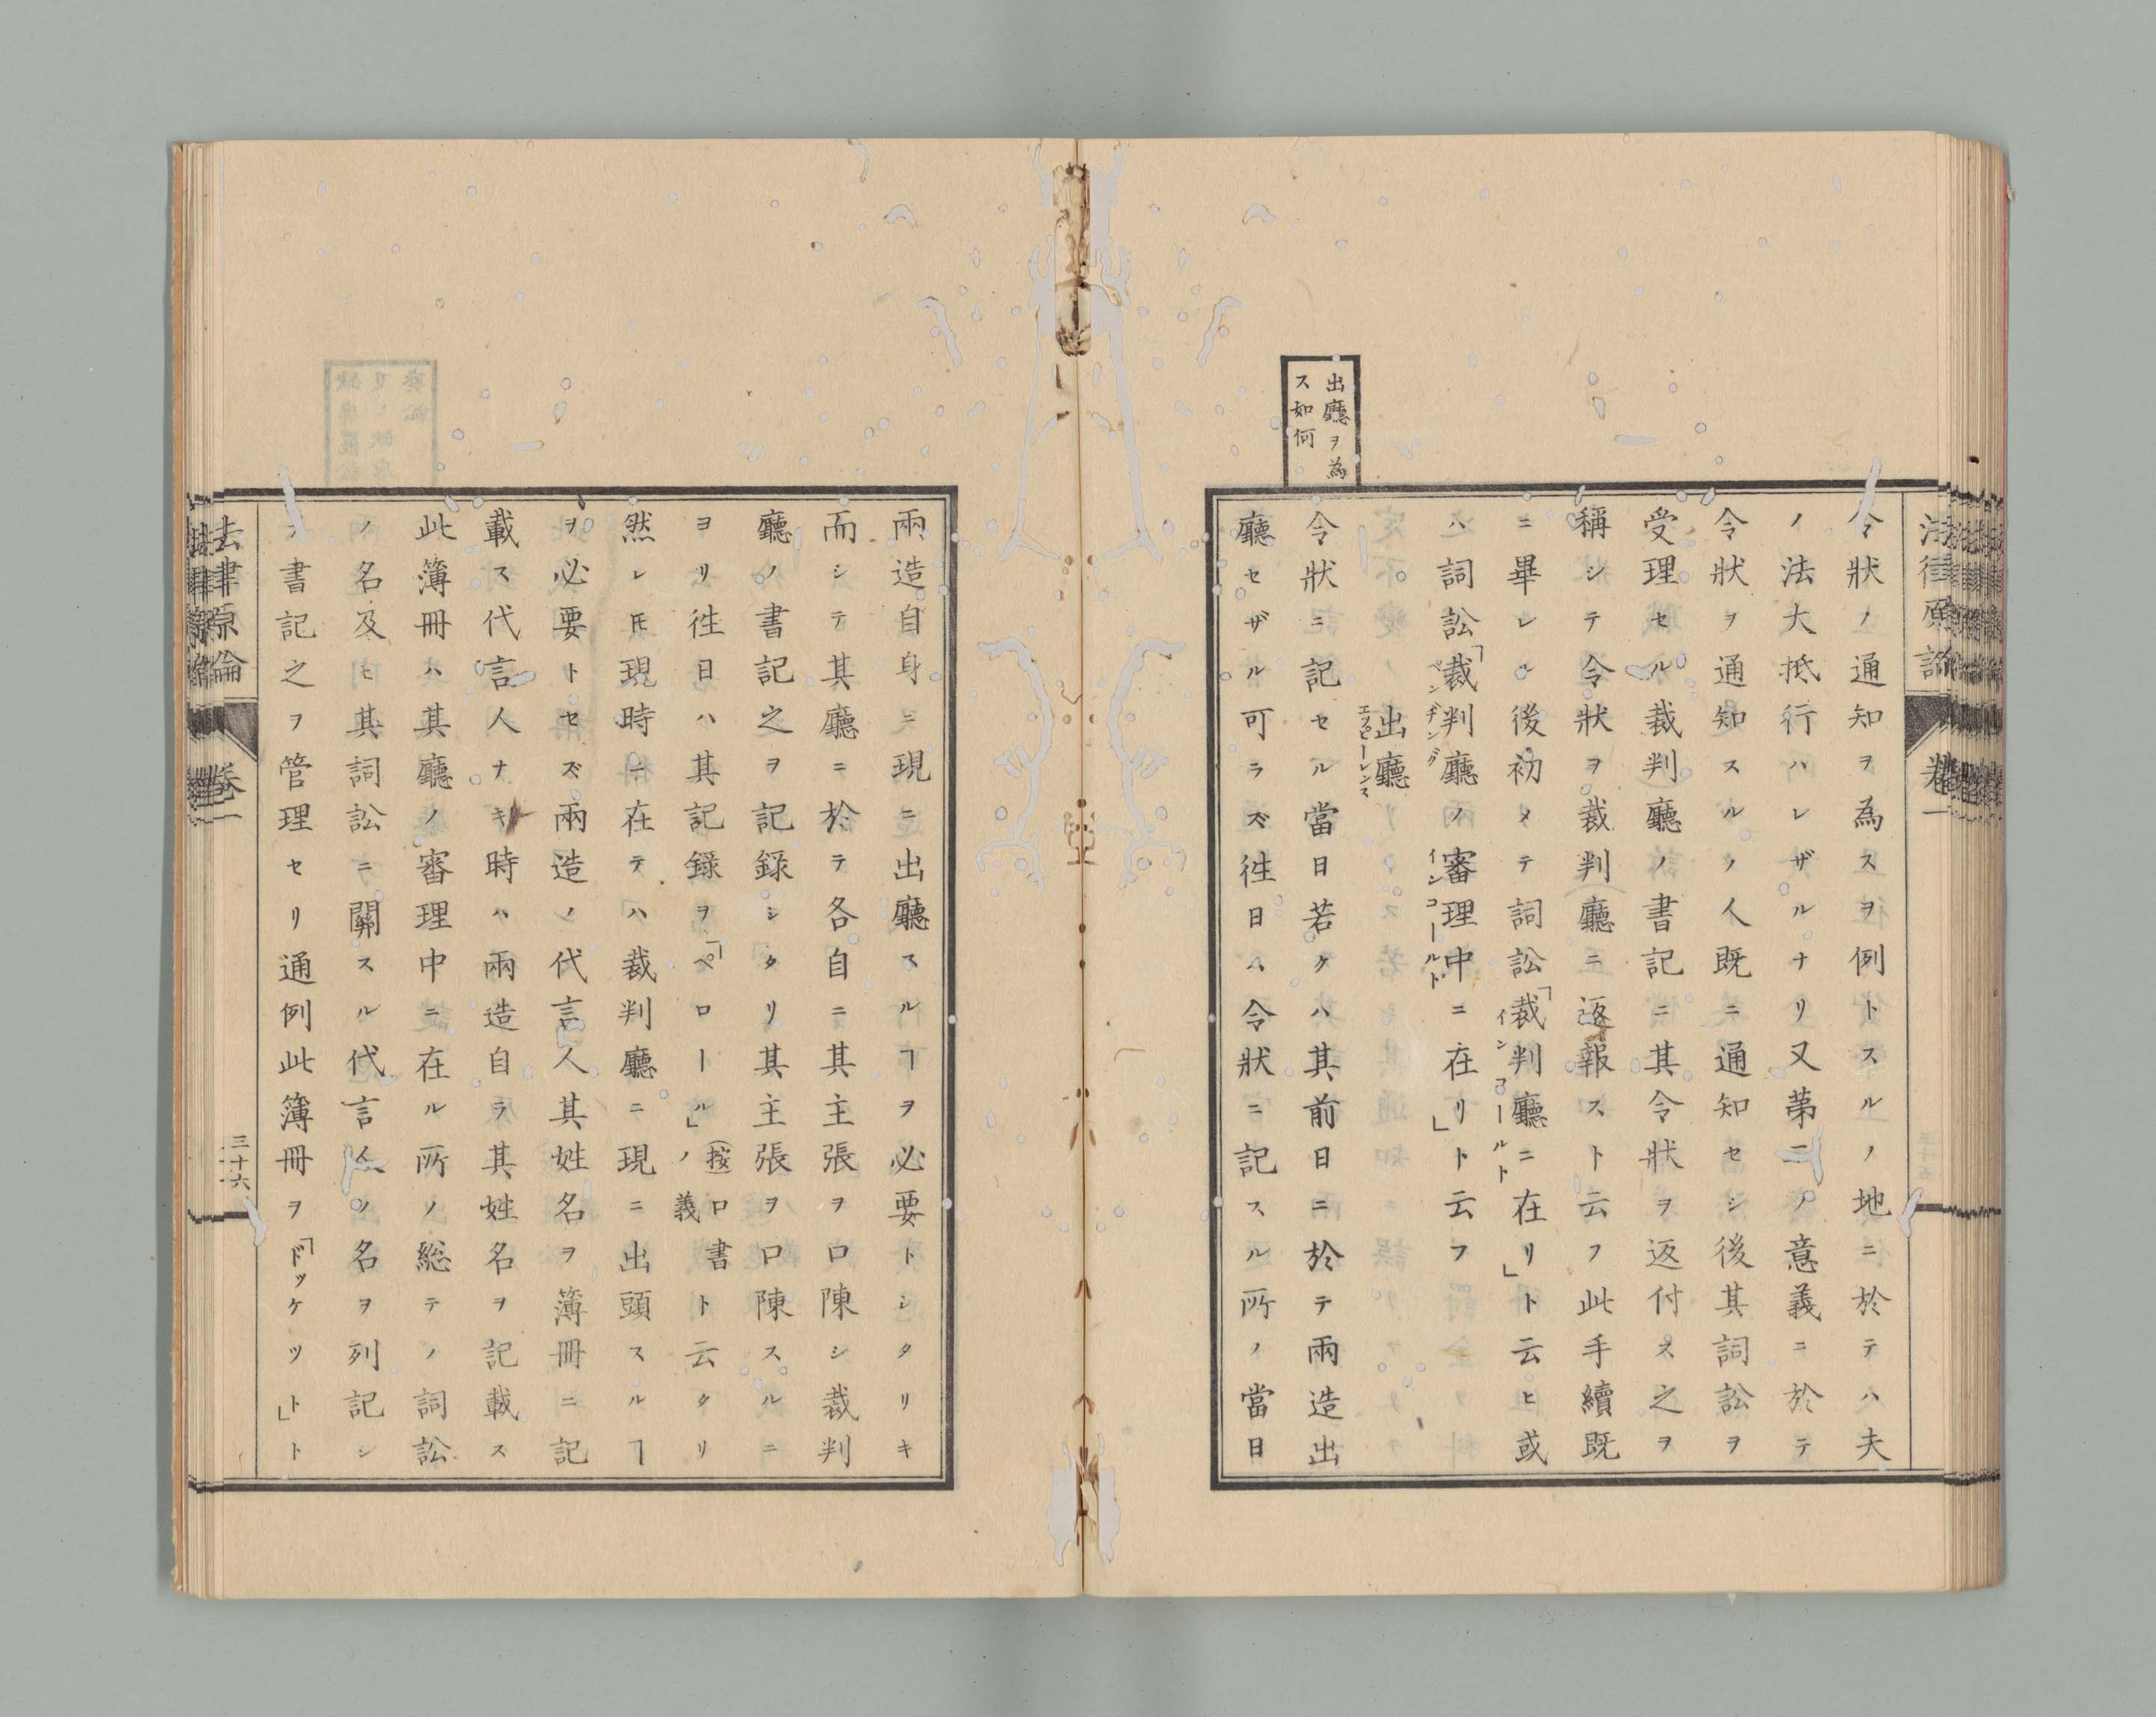 法律原論
卷一
令狀ノ通知ヲ為スヲ例トスルノ地ニ於テハ夫
ノ法大抵行ハレザルナリ又第二ノ意義ニ於テ
令狀ヲ通知スルノ人既ニ通知セシ後其詞訟ヲ
受理セル裁判廳ノ書記ニ其令狀ヲ返付ス之ヲ
稱シテ令狀ヲ裁判廳ニ返報ストニ云フ此手續既
ニ畢レル後初メテ詞訟「裁判廳ニ在リ」ト云ヒ或
イン コールト
ハ詞訟「裁判廳ノ審理中ニ在リ」ト云フ
ペンヂング インコールト
出廳
エッピーレンス
出廳ヲ為
ス如何
令狀ニ記セル當日若クハ其前日ニ於テ兩造出
廳セザル可ラズ徃日ハ令狀ニ記スル所ノ當日
兩造自身ニ現ニ出廳スルヿヲ必要トシタリキ
而シテ其廳ニ於テ各自ニ其主張ヲ口陳シ裁判
廳ノ書記之ヲ記録シタリ其主張ヲ口陳スルニ
ヨリ徃日ハ其記録ヲ「ペロール」(按口書ノ義)ト云クリ
然レ𪜈現時ニ在テハ裁判廳ニ現ニ出頭スルヿ
ヲ必要トセズ兩造ノ代言人其姓名ヲ簿冊ニ記
載ス代言人ナキ時ハ兩造自ラ其姓名ヲ記載ス
此簿冊ハ其廳ノ審理中ニ在ル所ノ総テノ詞訟
ノ名及ヒ其詞訟ニ關スル代言人ノ名ヲ列記シ
書記之ヲ管理セリ通例此簿冊ヲ「ドッケツト」ト
法律原論
卷一
三十六